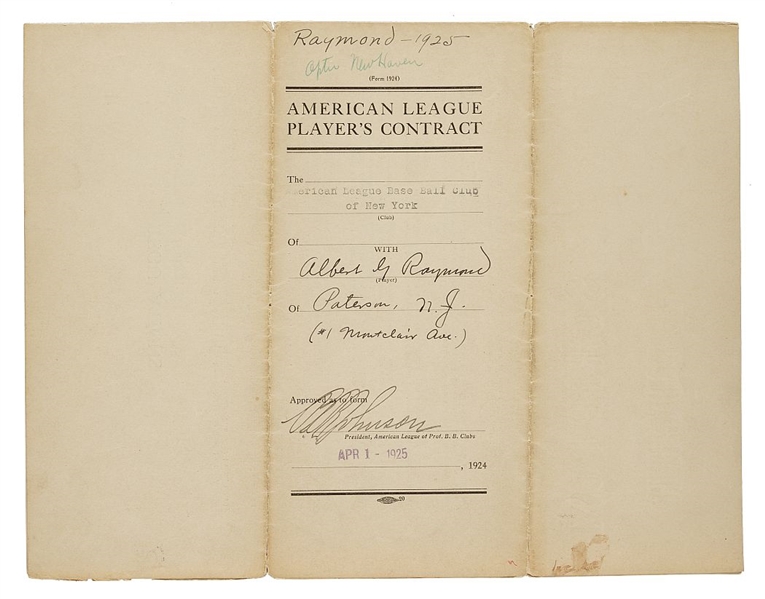 Raymond - 1925
Optn New Haven
(Form 1924)
AMERICAN LEAGUE
PLAYER'S CONTRACT
The
erican League Base Ball Club
of New York
(Club)
Of
WITH
Albert G Raymond
(Player)
Of Paterson, N.J.
(#1 Montclair Ave.)
Approved as to form
Johnson
President, American League of Prof. B. B. Clubs
APR 1 - 1925
, 1924
20